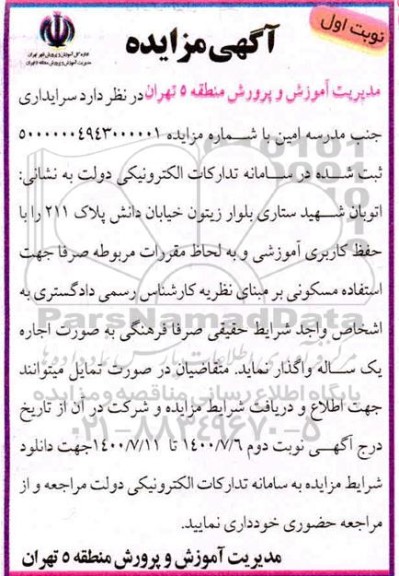 نوبت اول
آگهی مزایده
اداره کل آموزش و پرورش شهر تهران
مدیریت آموزش و پرورش منطقه ۵ تهران
مدیریت آموزش و پرورش منطقه ۵ تهران در نظر دارد سرایداری
جنب مدرسه امین با شماره مزایده ۵۰۰۰۰۰۰۴۹۴۳۰۰۰۰۰۱
ثبت شده در سامانه تدارکات الکترونیکی دولت به نشانی:
اتوبان شهید ستاری بلوار زیتون خیابان دانش پلاک ۲۱۱ را با
حفظ کاربری آموزشی و به لحاظ مقررات مربوطه صرفا جهت
استفاده مسکونی بر مبنای نظریه کارشناس رسمی دادگستری به
اشخاص واجد شرایط حقیقی صرفا فرهنگی به صورت اجاره
یک ساله واگذار نماید. متقاضیان در صورت تمایل میتوانند
جهت اطلاع و دریافت شرایط مزایده و شرکت در آن از تاریخ
درج آگهی نوبت دوم ۱۴۰۰/۷/۶ تا ۱۴۰۰/۷/۱۱جهت دانلود
شرایط مزایده به سامانه تدارکات الکترونیکی دولت مراجعه و از
مراجعه حضوری خودداری نمایید.
مدیریت آموزش و پرورش منطقه ۵ تهران
ParsNamadData
پایگاه اطلاع رسانی مناقصه و مزایده
۰۲۱-۸۸۳۴۹۶۷۰-۵